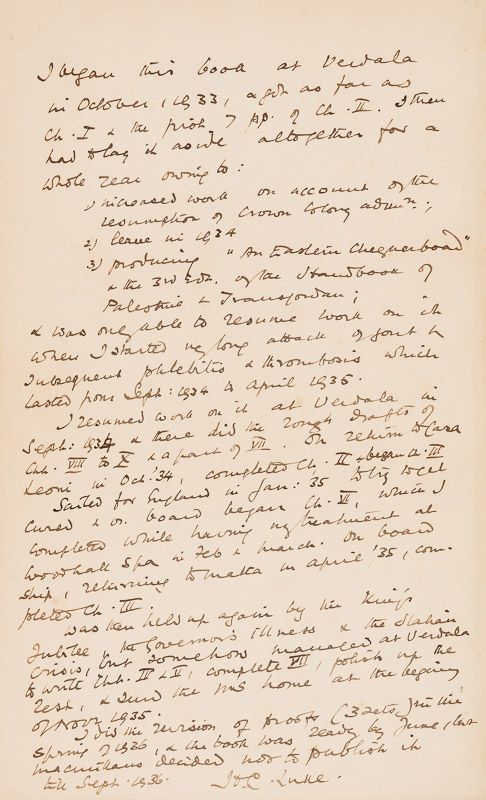 I began this book at Verdala
in October, 1933, & got as far as
Ch. I & the first 7 pp. of Ch. II. I then
had to lay it aside altogether for a
whole year owing to:
1) increased work on account of the
resumption of Crown Colony admn.;
2) leave in 1934
3) producing "An Eastern Chequerboard"
& the 3rd edn. of the Handbook of
Palestine & Transjordan;
& was only able to resume work on it
when I started my long attack of gout &
subsequent phlebitis & thrombosis which
lasted from Sept: 1934 to April 1935.
I resumed work on it at Verdala in
Sept: 1934 & there did the rough drafts of
Chh. VIII to X & a part of VII. On return to Casa
Leoni in Oct. '34, completed Ch. II & began Ch. III
Sailed for England in Jan: '35 to try to get
cured & on board began Ch. VI, which I
completed while having my treatment at
Woodhall Spa in Feb & March. On board
ship, returning to Malta in April '35, com-
pleted Ch. III.
Was then held up again by the King's
Jubilee & the Governor's illness & the Italian
Crisis, but somehow managed at Verdala
to write Chh. IV & V, complete VII, polish up the
rest, & send the MS home at the beginning
of Novr. 1935.
I did the revision of proofs (3 sets) in the
Spring of 1936, & the book was ready by June, but
Macmillans decided not to publish it
till Sept. 1936.
H.C. Luke.